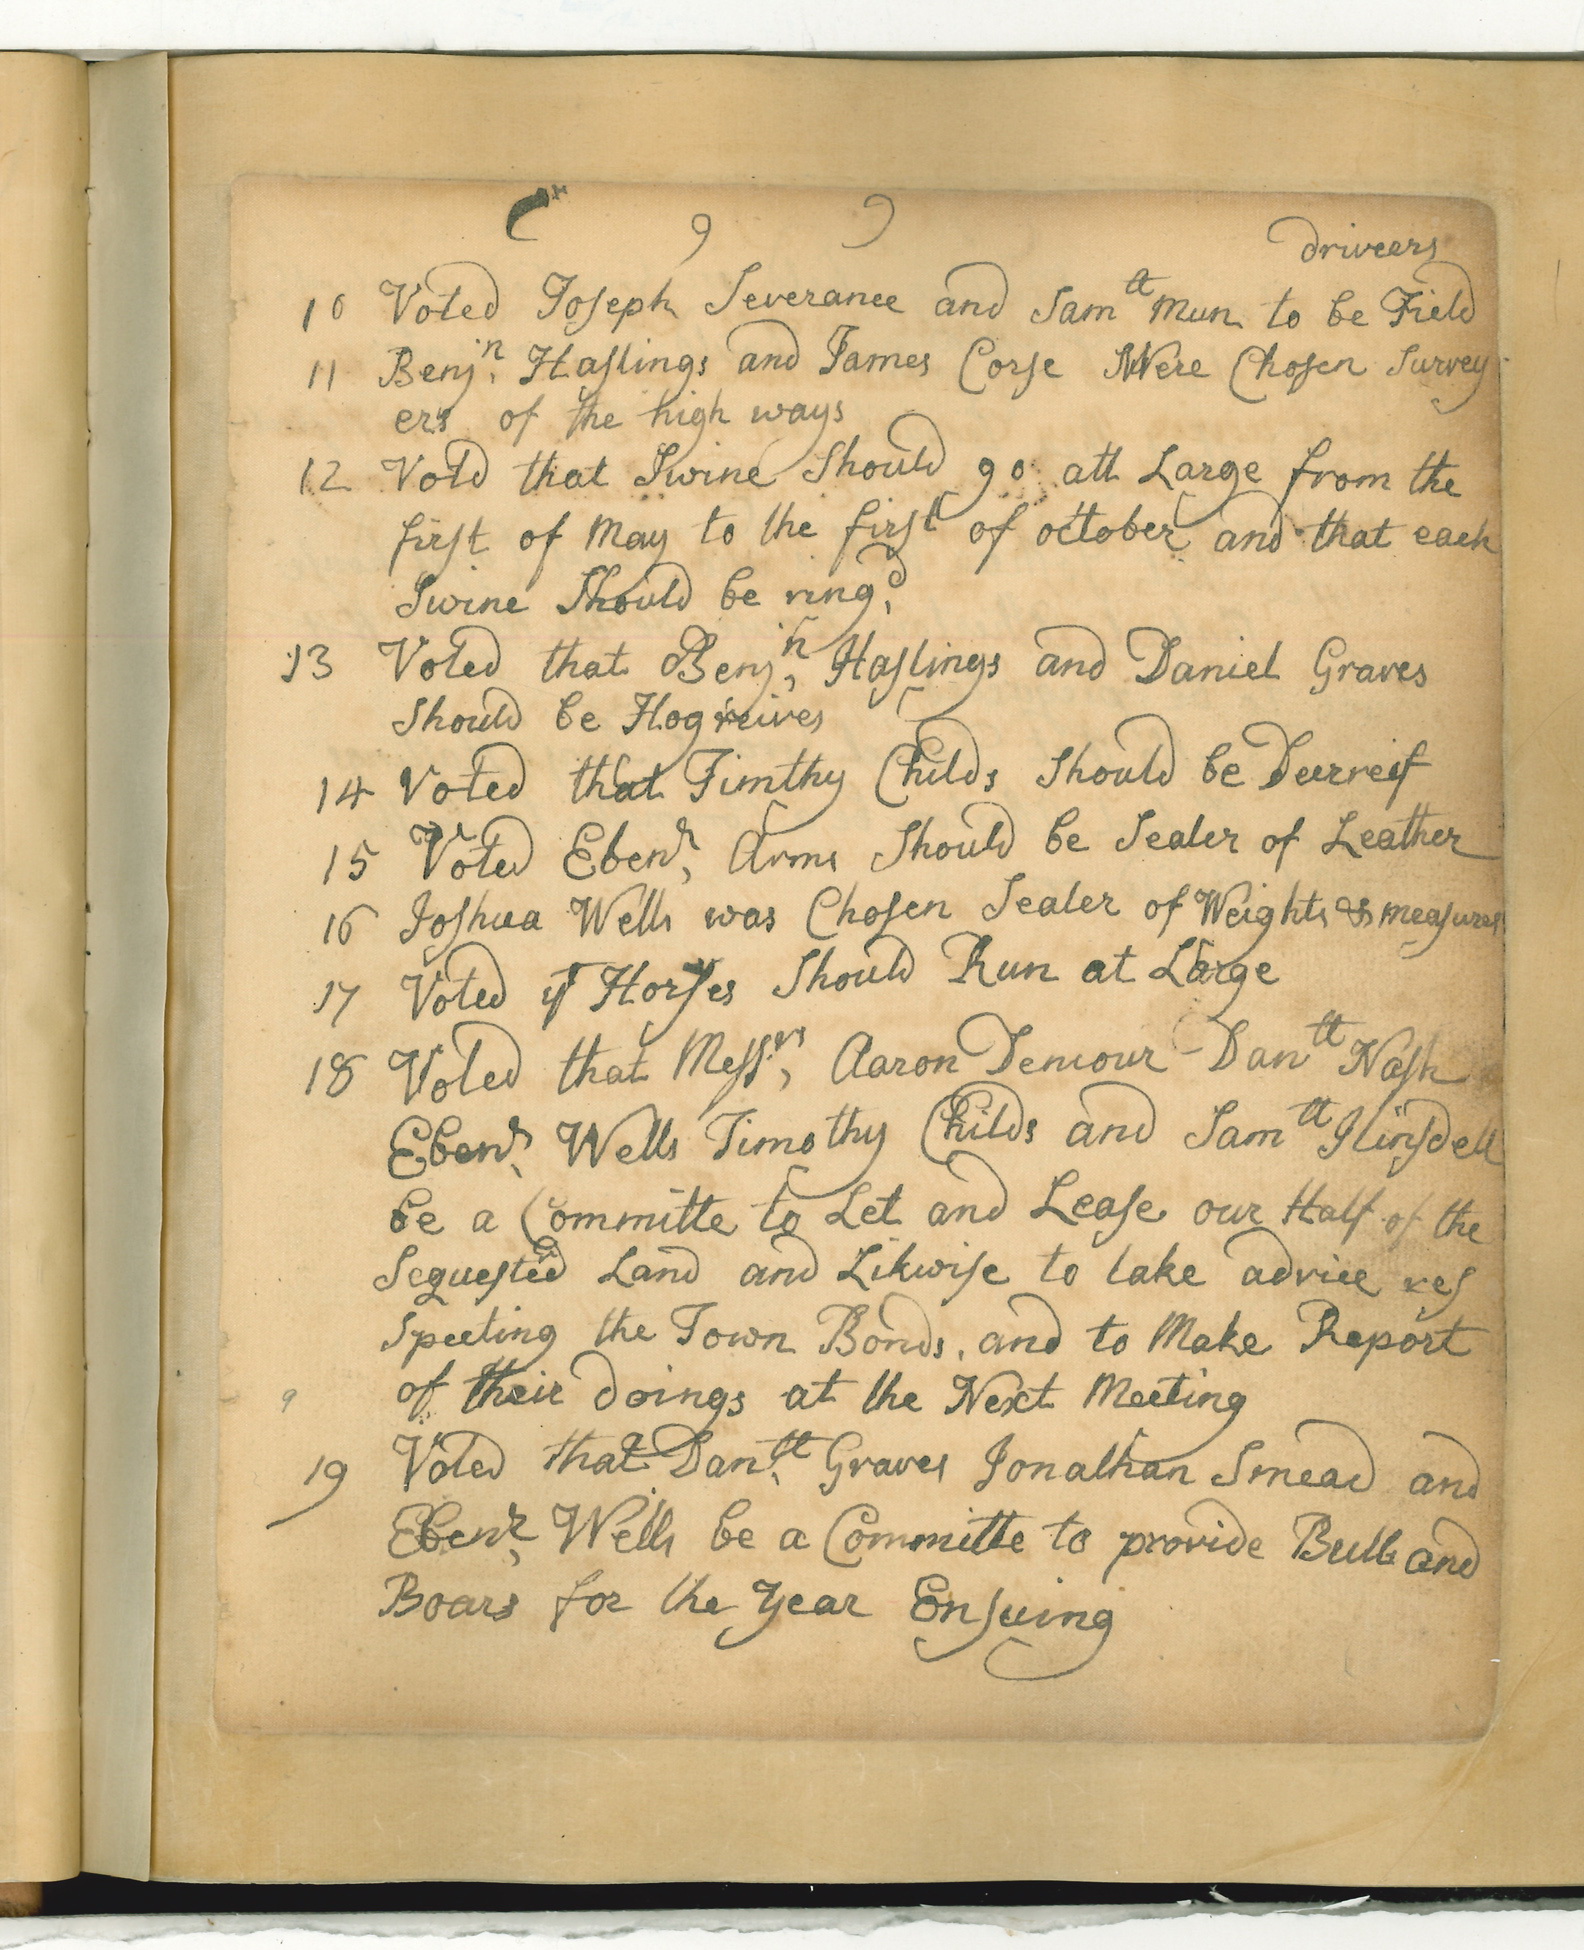 driveers
10 Voted Joseph Severance and Samll Mun to be Field
11 Benjn. Hastings and James Corse Were Chosen Survey
ers of the high ways
12 Votd that Swine Should go att Large from the
first of May to the first of october and that each
Swine Should be ringd.
13 Voted that Benjn, Hastings and Daniel Graves
Should be Hogreives
14 Voted that Timthy Childs Should be Deerreif
15 Voted Ebenr, Arms Should be Sealer of Leather
16 Joshua Wells was Chosen Sealer of Weights & measures
17 Voted yt Horses Should Run at Large
18 Voted that Messrs, Aaron Denio our Danll Nash
Ebenr, Wells Timothy Childs and Samll Hinsdell
be a Committe to Let and Lease our Half of the
Sequested Land and Likwise to take advice res
specting the Town Bonds, and to Make Report
of their doings at the Next Meeting
19 Voted that Danll. Graves Jonathan Smead and
Ebenr, Wells be a Committe to provide Bulls and
Boars for the Year Ensuing